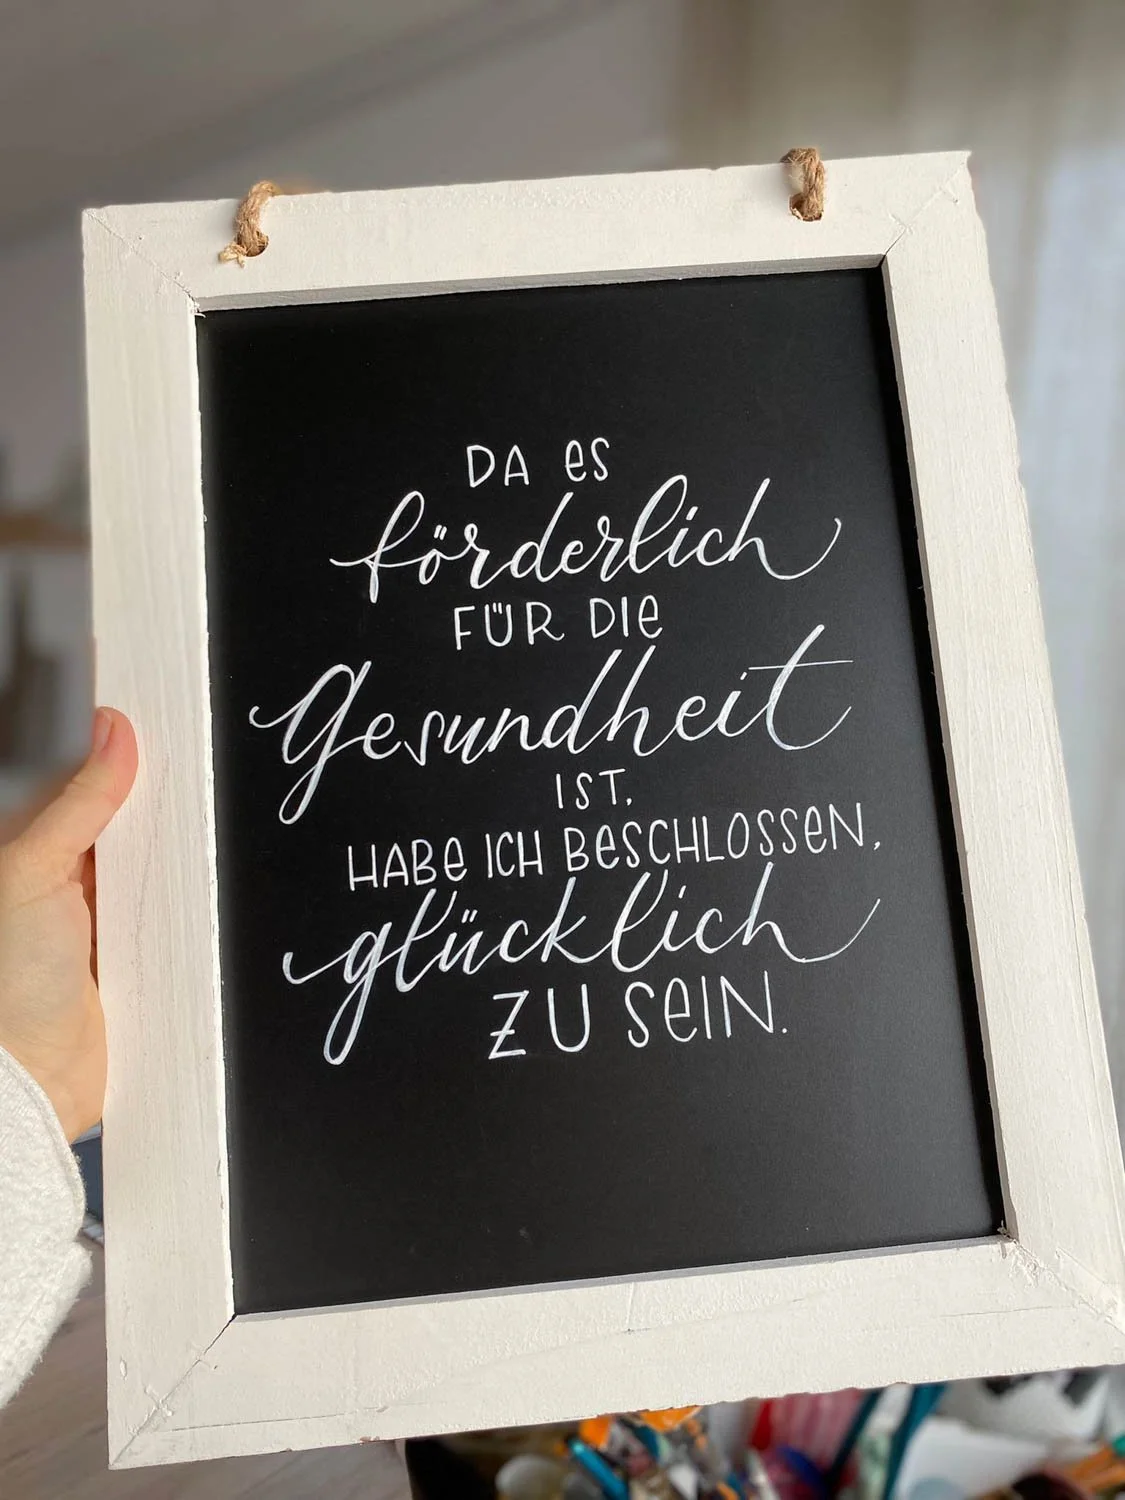 DA ES
förderlich
FÜR DIE
Gesundheit
IST,
HABE ICH BESCHLOSSEN,
glücklich
ZU SEIN.